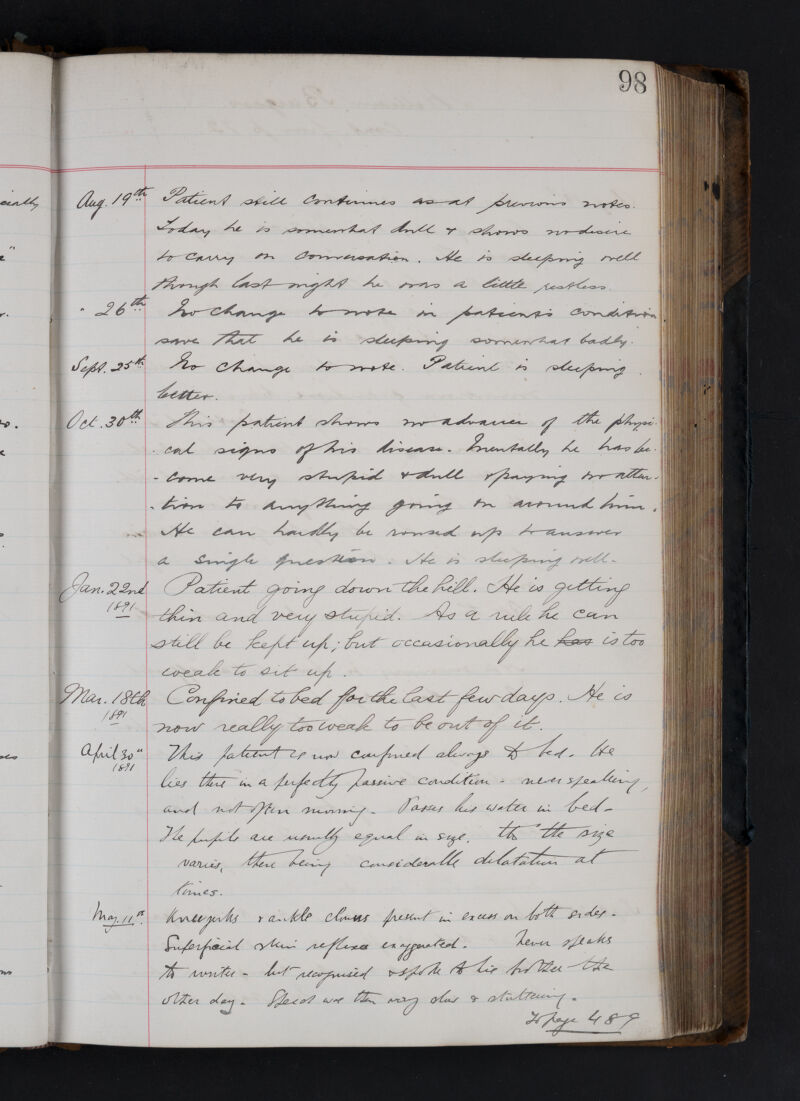 98
Aug. 19th Patient still continues as at previous notes.
Today he is somewhat dull & shows no desire
to carry on conversation. He is sleeping well
though last night he was a little restless.
" 26th No change to note in patient's condition
save that he is sleeping somewhat badly.
Sept. 25th No change to note. Patient is sleeping
better.
Oct. 30th This patient shows no advance of the physi-
-cal signs of his disease. Mentally he has be-
-come very stupid & dull & paying no atten-
-tion to anything going on around him.
He can hardly be roused up to answer
a single question. He is sleeping well.
Jan. 22nd Patient going down the hill. He is getting
1891 thin and very stupid. As a rule he can
still be kept up; but occasionally he has is too
weak to sit up.
Mar. 18th Confined to bed for the last few days. He is
1891 now really too weak to be out of it.
April 30th This patient is now confined always to bed. He
1891 lies there in a perfectly passive condition - never speaking,
and not often moving. Passes his water in bed.
The pupils are usually equal in size, tho' the size
varies, there being considerable dilatation at
times.
May. 11th Knee jerks & ankle clonus present in excess on both sides.
Superficial skin reflexes exaggerated. Never speaks
to writer - but recognised & spoke to his brother the
other day. Speech was then very slow & stuttering.
To page 489